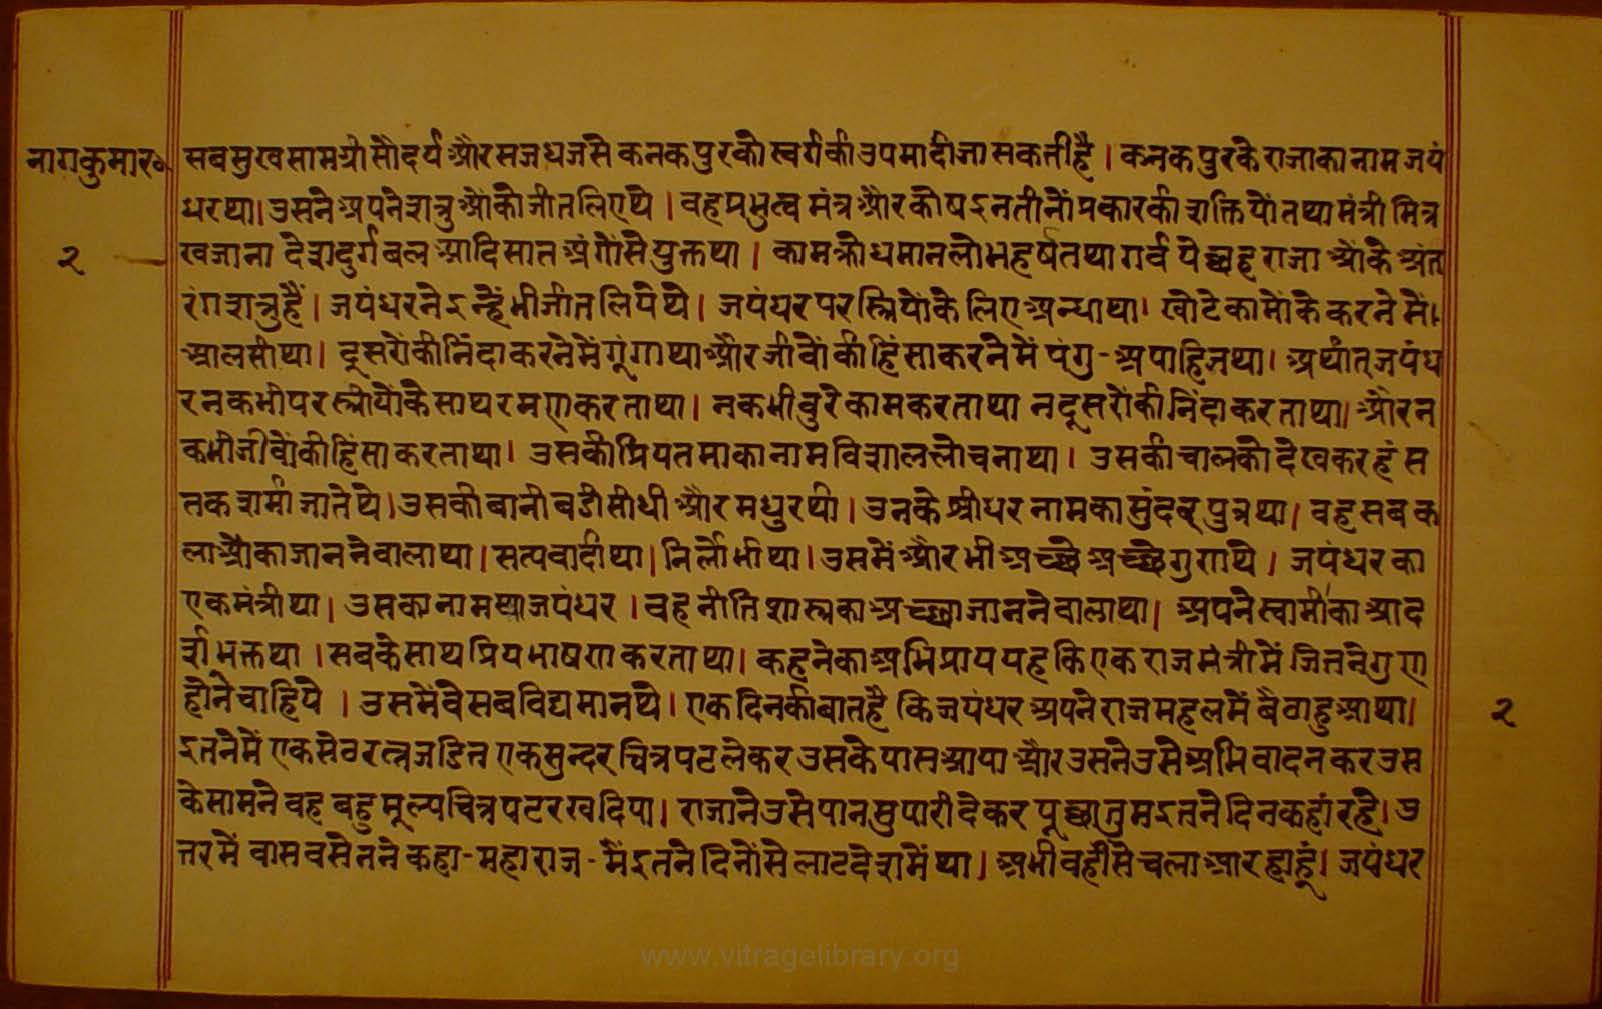 नागकुमार॰
२
सबसुखसामग्रीसौदर्यऔरसजधजसेकनकपुरकोस्वर्गकीउपमादीजासकतीहै।कनकपुरकेराजाकानामजयं
धरथा।उसनेअपनेशत्रुओंकोजीतलिएथे।वहप्रभुत्वमंत्रऔरकोषइनतीनोंप्रकारकीशक्तियोंतथामंत्रीमित्र
खजानादेशदुर्गबलआदिसातअंगोंसेयुक्तथा।कामक्रोधमानलोभहर्षतथागर्वयेछहराजाओंकेअंत
रंगशत्रुहैं।जयंधरनेइन्हेंभीजीतलियेथे।जयंधरपरस्त्रियोंकेलिएअन्धाथा।खोटेकामोंकेकरनेमें।
आलसीथा।दूसरोंकीनिंदाकरनेमेंगूंगाथाऔरजीवोंकीहिंसाकरनेमेंपंगु-अपाहिजथा।अर्थात्जयंध
रनकभीपरस्त्रीयोंकेसाथरमणकरताथा।नकभीबुरेकामकरताथानदूसरोंकीनिंदाकरताथा।औरन
कभीजीवोंकीहिंसाकरताथा।उसकीप्रियतमाकानामविशाललोचनाथा।उसकीचालकोदेखकरहंस
तकशर्माजातेथे।उसकीबानीबडीसीधीऔरमधुरथी।उनकेश्रीधरनामकासुंदरपुत्रथा।वहसबक
लाओंकाजाननेवालाथा।सत्यवादीथा।निर्लोभीथा।उसमेंऔरभीअच्छेअच्छेगुणथे।जयंधरका
एकमंत्रीथा।उसकानामथाजयंधर।वहनीतिशास्त्रकाअच्छाजाननेवालाथा।अपनेस्वामीकाआद
र्शभक्तथा।सबकेसाथप्रियभाषणकरताथा।कहनेकाअभिप्राययहकिएकराजमंत्रीमेंजितनेगुण
होनेचाहिये।उसमेंवेसबविद्यमानथे।एकदिनकीबातहैकिजयंधरअपनेराजमहलमेंबैठाहुआथा।
इतनेमेंएकसेठरत्नजडितएकसुन्दरचित्रपटलेकरउसकेपासआयाऔरउसनेउसेअभिवादनकरउस
केसामनेवहबहुमूल्यचित्रपटरखदिया।राजानेउसेपानसुपारीदेकरपूछातुमइतनेदिनकहांरहे।उ
त्तरमेंवासवसेठनेकहा-महाराज-मेंइतनेदिनोंसेलाटदेशमेंथा।अभीवहींसेचलाआरहाहूं।जयंधर
२
www.vitragelibrary.org